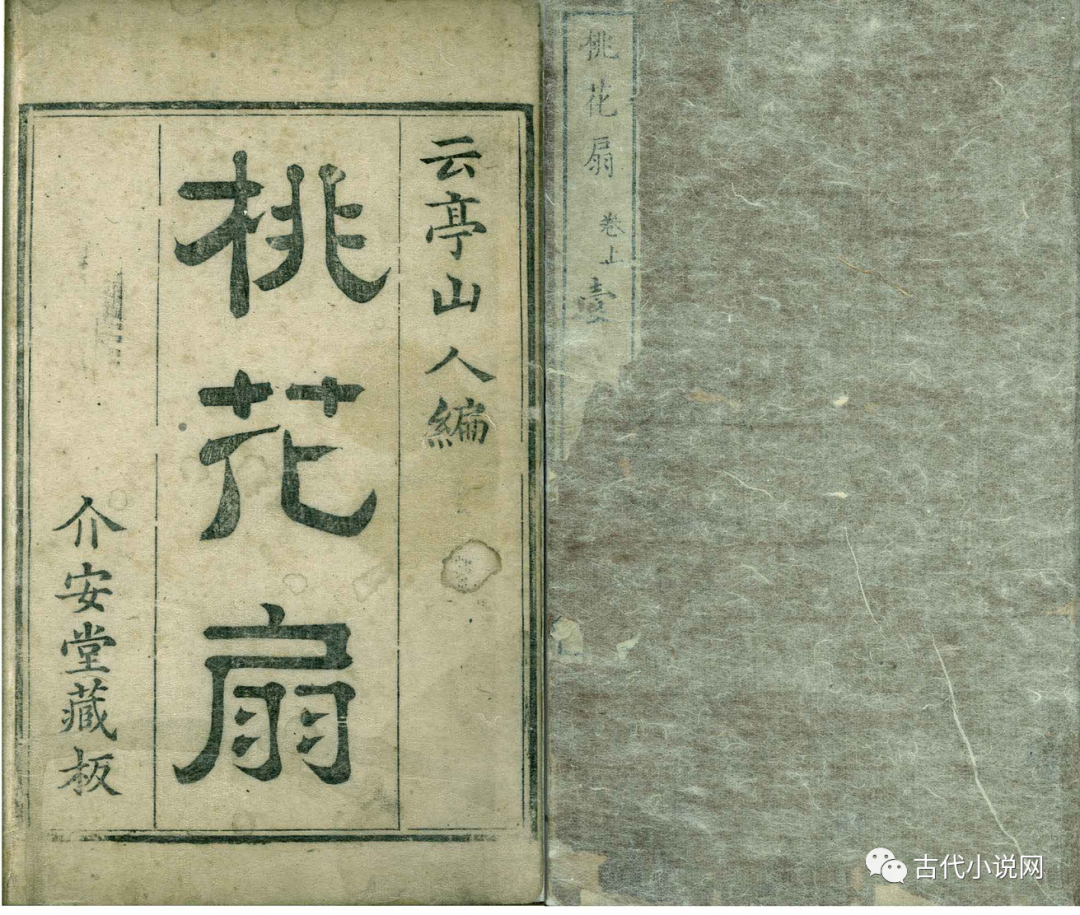 云亭山人編
桃花扇
介安堂藏板
桃花扇 卷上 壹
古代小说网